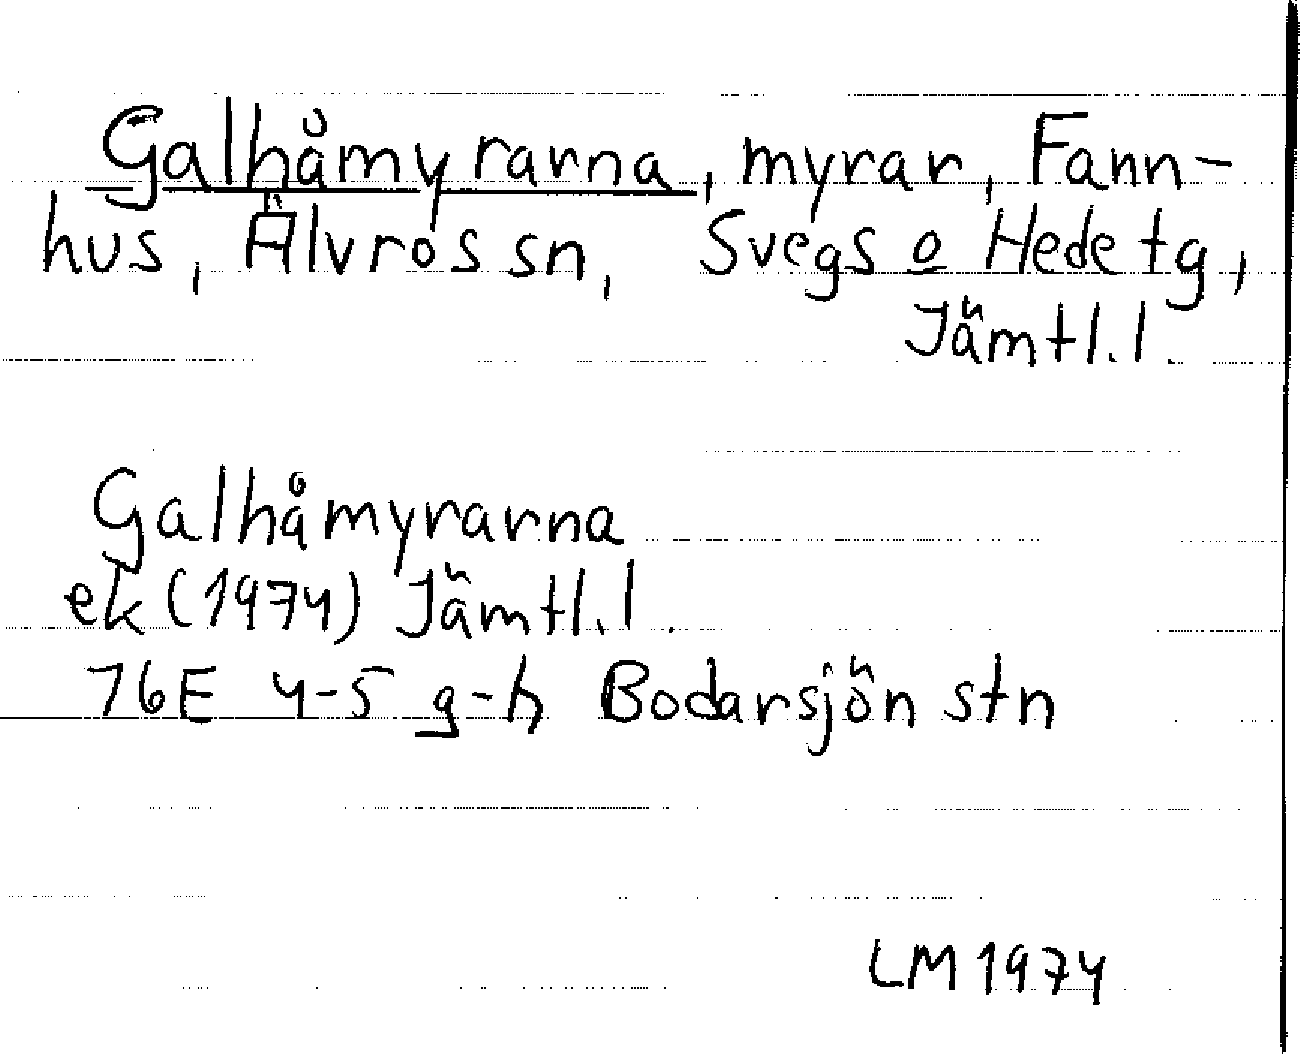 Galhåmyrarna, myrar, Fann-
hus, Älvros sn, Svegs o Hede tg,
Jämtl.l.
Galhåmyrarna
ek (1974) Jämtl.l.
76E 4-5 g-h Bodarsjön stn
LM 1974